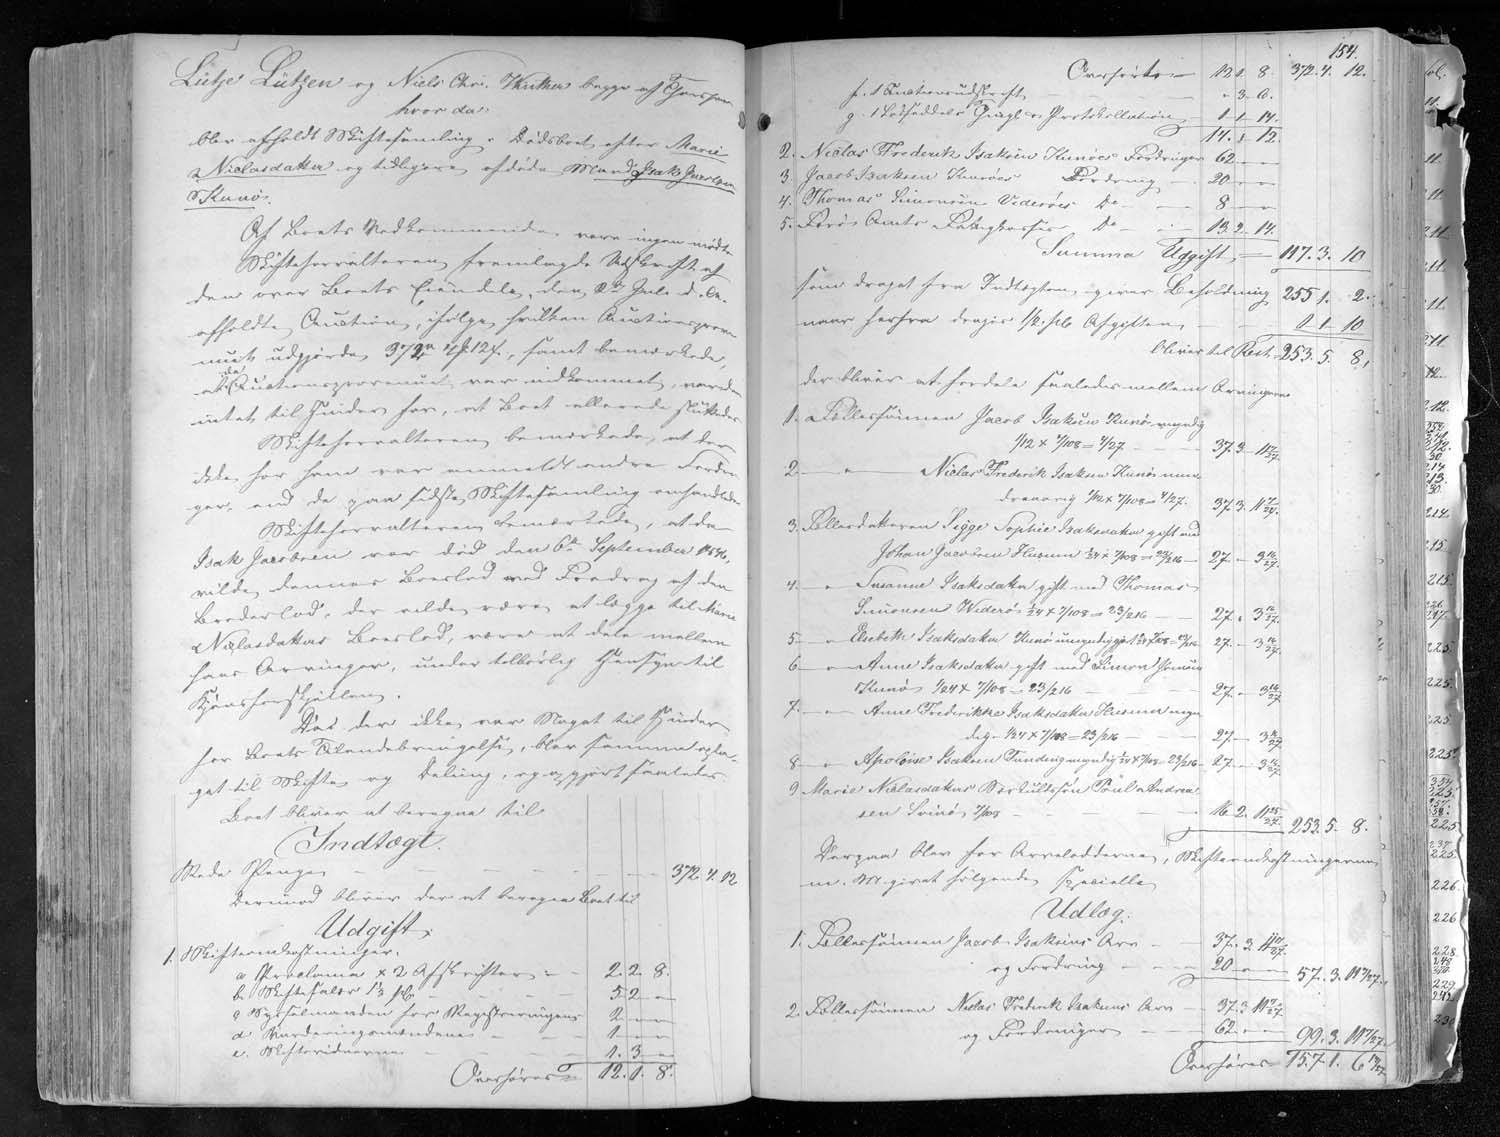 Lütje Lützen og Niels Chr. Winther begge af Thorshavn
hvor da:
blev afholdt Skiftesamling i Dødsboet efter Marie
Niclasdatter og tidligere afdøde Mand Isak Jacobsen
Kunø.
Af Boets Vedkommende vare ingen mødt.
Skifteforvalteren fremlagde Udskrift af
den over Boets Eiendele, den 2den Juli d. A.
afholdte Auction, ifølge hvilken Auctionsprove-
nuet udgjorde 372 4 12 s., samt bemærkede,
at da Auctionsprovenuet var indkommet, var der
intet til Hinder for, at Boet allerede sluttedes
Skifteforvalteren bemærkede, at der
ikke for ham var anmeldt andre Fordrin-
ger, end de paa sidste Skiftesamling omhandlede
Skifteforvalteren bemærkede, at da
Isak Jacobsen var død den 6te September
vilde dennes Boeslod med Fradrag af den
Broderlod, der vilde være at lægge til Marie
Niclasdatters Boeslod, være at dele mellem
hans Arvinger, under tilbørlig Hensyn til
Da der ikke var Noget til Hinder
for Boets Tilendebringelse, blev samme opta-
get til Skifte og Deling, og opgjort saaledes
Boet bliver at beregne til
Indtægt.
Rede Penge - - - 372. 4. 12
Derimod bliver der at beregne Boet til
Udgift.
1. Skifteomkostninger.
a Proclama x 2 Afskrifter - - 2. 2. 8.
b. Skiftesalær 1½ pCt - - 5. 2. -
c Sysselmanden for Registreringen 2. - -
d Vurderingsmændene - - 1. - -
e. Skiftevidnerne - - 1. 3. -
Overføres = 12. 1. 8.
154.
Overført = 12. 1. 8. 372. 4. 12.
f. 1 Auctionsudskrift - - - 3. 0.
g. 1 Lodseddels Thinglæsn. Protokollation - 1. 1. 14.
14. " 12.
2. Niclas Frederik Isaksen Kunøes Fordringer 62 - -
3. Jacob Isaksen Kunøes Fordring - 20 - -
4. Thomas Simonsen Viderøes Do - - 8 - -
5. Færø Amts Fattigkasses Do - - 13. 2. 14.
Summa Udgift = 117. 3. 10
som draget fra Indtægten, giver Beholdning 255. 1. 2.
naar herfra drages ½ pCt Afgiften - - 1. 1. 10
bliver til Rest 253. 5. 8,
der bliver at fordele saaledes mellem Arvingerne
1. a Fællessønnen Jacob Isaksen Kunø, myndig
1/12 x 7/108 = 4/27 - - 37. 3. 11 17/27
2 - " - Niclas Frederik Isaksen Kunø min-
dreaarig 1/12 x 7/108 = 4/27. 37. 3. 11 17/27.
3. Fællesdatteren Sigge Sophie Isaksdatter gift med
Johan Jacobsen Husum 1/24 x 7/108 = 23/216 - 27 - 3 16/27.
4 - " Susanne Isaksdatter gift med Thomas
Simonsen Viderø 1/24 x 7/108 = 23/216 - - 27. " 3 16/27
5 - " Elsebeth Isaksdatter Kunø umyndig 1/24 x 7/108 = 23/216 27. - 3 16/27
6 - " Anne Isaksdatter gift med Simon
Kunø 1/24 x 7/108 = 23/216 - - 27. " 3 16/27
7. - " Anne Frederikke Isaksdatter Husum myn-
dig 1/24 x 7/108 = 23/216 - - 27 - 3 16/27
8 - " Apolone Isaksen Funding myndig 1/24 x 7/108 = 23/216 - 27 - 3 16/27.
9 Marie Niclasdatters Særkuldssøn Poul Andrea-
sen Svinø 7/108 - - 16. 2. 11 25/27. 253. 5. 8.
Derpaa blev for Arvelodderne, Skifteomkostningerne
m. M. givet følgende specielle
Udlæg:
1. Fællessønnen Jacob Isaksens Arv - - 37. 3. 11 17/27.
og Fordring - - - 20 - - 57. 3. 11 17/27.
2. Fællessønnen Niclas Frederik Isaksens Arv - 37. 3. 11 17/27.
og Fordringer - - - 62 - - 99. 3. 11 17/27.
Overføres = 157. 1. 6